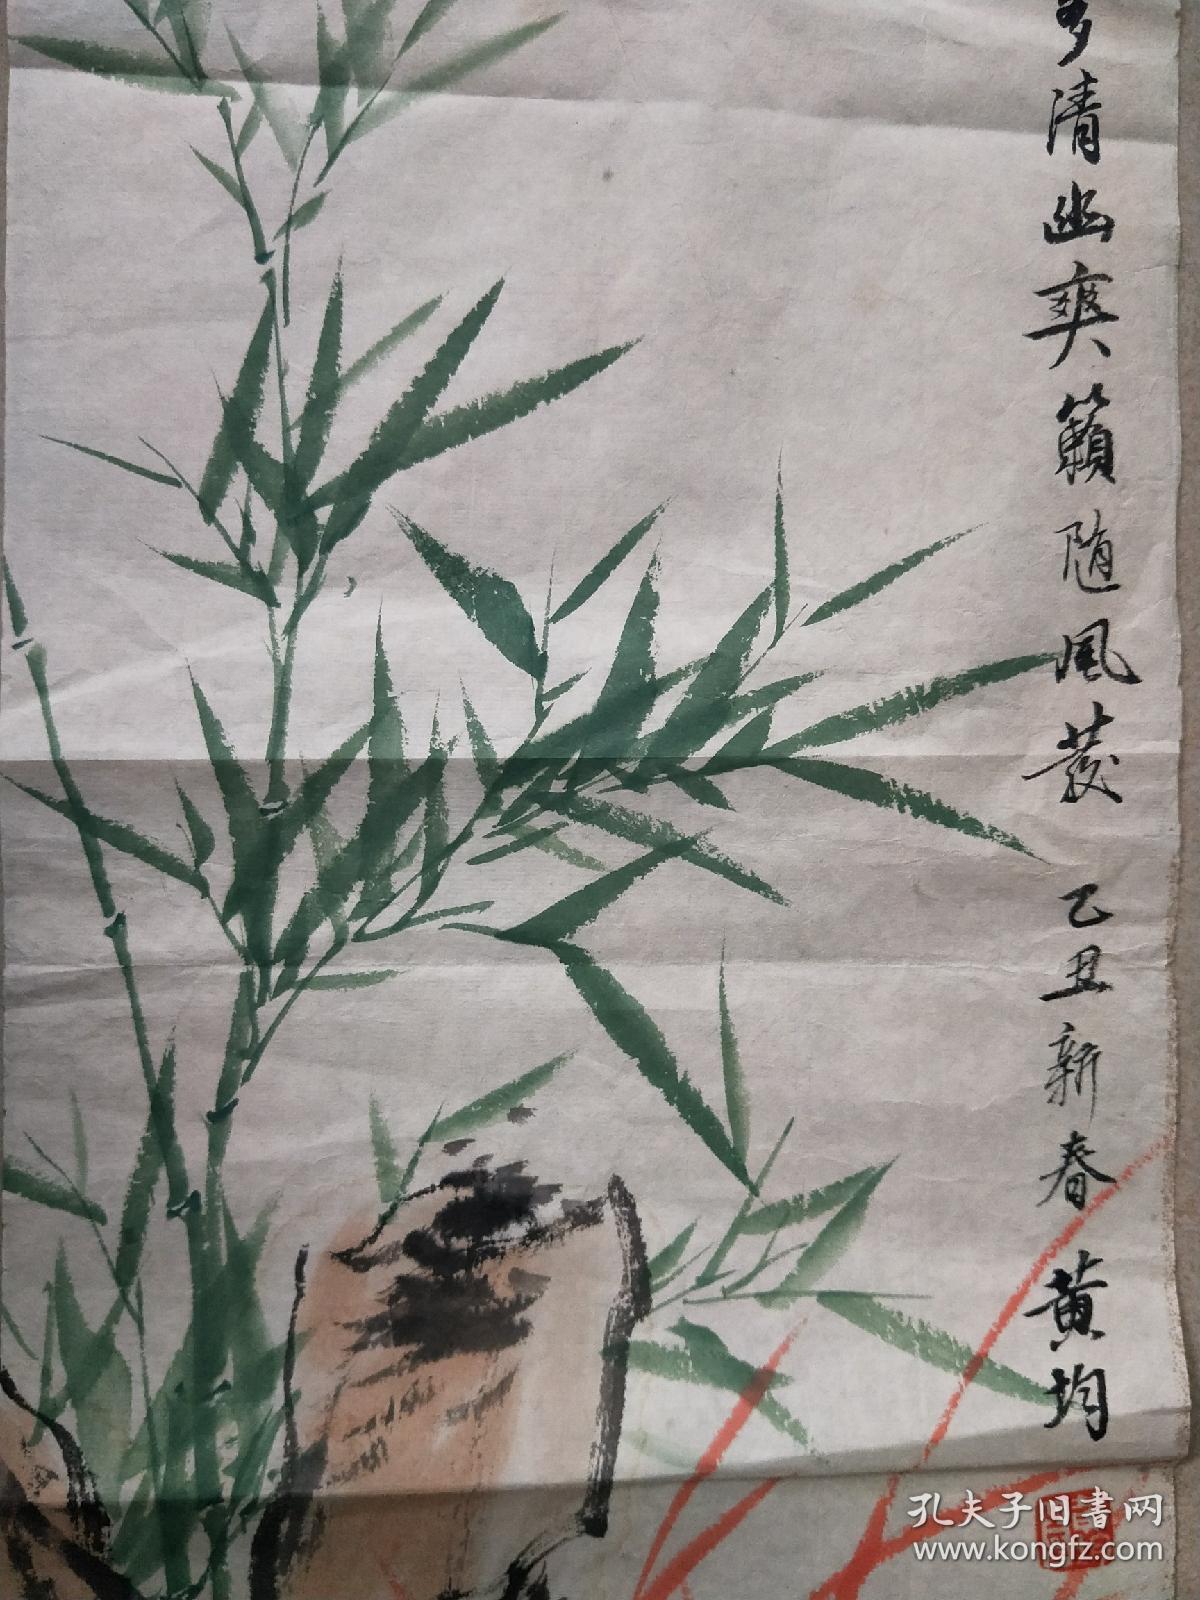 多清幽爽籟随風發 乙丑新春 黄均
孔夫子旧書网
www.kongfz.com